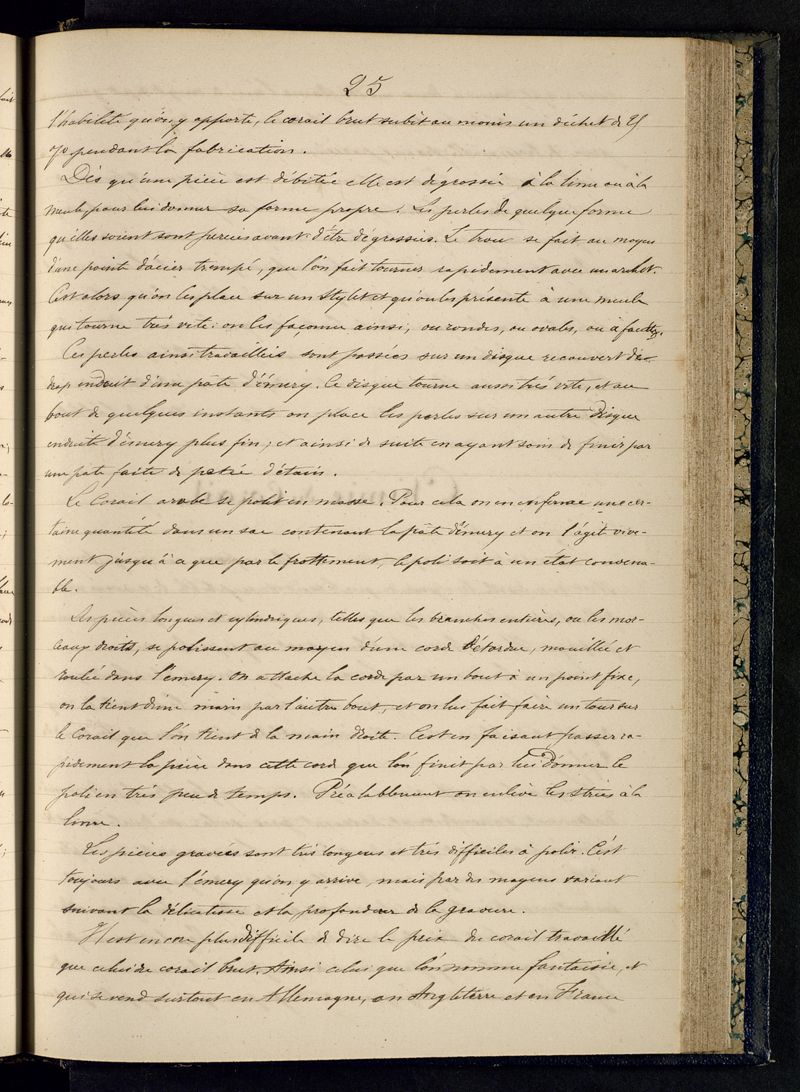 25
l'habileté qu'on y apporte, le corail brut subit au moins un déchet de 25
% pendant la fabrication.
Dès qu'une pièce est débitée elle est dégrossie à la lime ou à la
meule pour lui donner sa forme propre. Les perles de quelque forme
qu'elles soient sont percées avant d'être dégrossies. Le trou se fait au moyen
d'une pointe d'acier trempé, que l'on fait tourner rapidement avec un archet.
C'est alors qu'on les place sur un stylet et qu'on les présente à une meule
qui tourne très vite: on les façonne ainsi, ou rondes, ou ovales, ou à facettes.
Ces perles ainsi travaillées sont passées sur un disque recouvert de
drap enduit d'une pâte d'émery. Ce disque tourne aussi très vite, et au
bout de quelques instants on place les perles sur un autre disque
enduite d'émery plus fin; et ainsi de suite en ayant soin de finir par
une pate faite de potée d'étain.
Le Corail arabe se polit en masse. Pour cela on en enferme une cer-
taine quantité dans un sac contenant la pâte d'émery et on l'agit vive-
ment jusqu'à a que par le frottement, le poli soit à un état convena-
ble.
Les pièces longues et cylindriques, telles que les branches entières, ou les mor-
ceaux droits, se polissent au moyen d'une corde détordue, mouillée et
roulée dans l'émery. On attache la corde par un bout à un point fixe,
on la tient d'une main par l'autre bout, et on lui fait faire un tour sur
le Corail que l'on tient de la main droite. C'est en faisant passer ra-
pidement la pièce dans cette corde que l'on finit par lui donner le
poli en très peu de temps. Préalablement on enlève les stries à la
lime.
Les pièces gravées sont très longues et très difficiles à polir. C'est
toujours avec l'émery qu'on y arrive, mais par des moyens variant
suivant la délicatesse et la profondeur de la gravure.
Il est encore plus difficile de dire le prix du corail travaillé
que celui de corail brut. Ainsi celui que l'on nomme fantaisie, et
qui se vend surtout en Allemagne, en Angleterre et en France